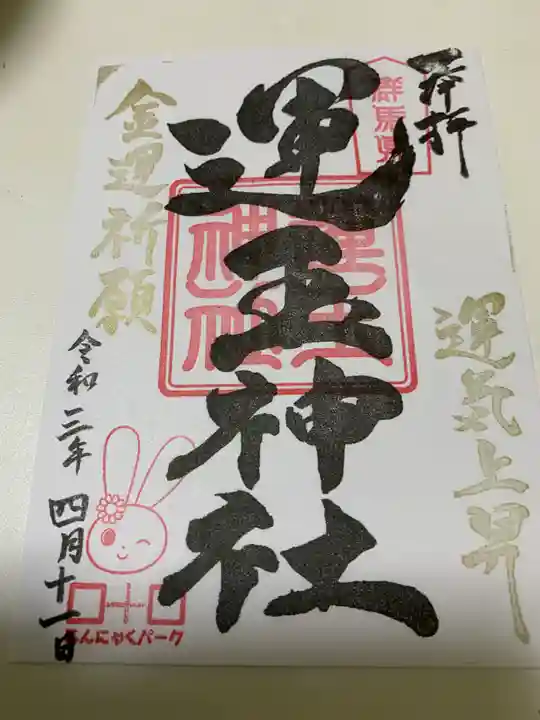 奉拝
群馬県
運気上昇
運玉神社
金運祈願
令和三年
四月十一日
こんにゃくパーク